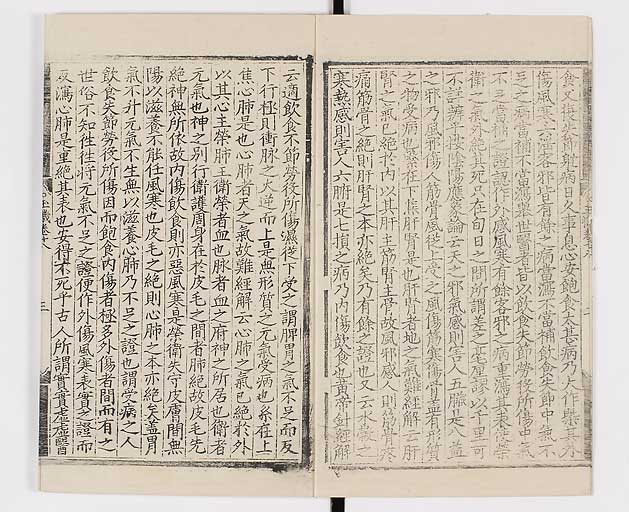 食又復失節射病日久事息心安飽食太甚病乃大作槩其外
傷風寒六淫客邪皆有餘之病當瀉不當補飲食失節中氣不
足之病當補不當瀉舉世醫者皆以飲食失節勞役所傷中氣
不足當補之證認作外感風寒有餘客邪之病重瀉其表使榮
衛之氣外絕其死只在旬日之間所謂差之毫釐謬以千里可
不詳辨乎按陰陽應象論云天之邪氣感則害人五臟是八益
之邪乃風邪傷人筋骨風從上受之風傷筋寒傷骨蓋有形質
之物受病也系在下焦肝腎是也肝腎者地之氣難經解云肝
腎之氣已絕於內以其肝主筋腎主骨故風邪感人則筋骨疼
痛筋骨之絕則肝腎之本亦絕矣乃有餘之證也又云水穀之
寒熱感則害人六腑是七損之病乃內傷飲食也黃帝針經解
云適飲食不節勞役所傷濕從下受之謂脾胃之氣不足而反
下行極則衝脉之火逆而上是無形質之元氣受病也系在上
焦心肺是也心肺者天之氣故難經解云心肺之氣已絕於外
以其心主榮肺主衛榮者血也脉者血之府神之所居也衛者
元氣也神之別行衛護周身在於皮毛之間者肺絕故皮毛先
絕神無所依故內傷飲食則亦惡風寒是榮衛失守皮膚間無
陽以滋養不能任風寒也皮毛之絕則心肺之本亦絕矣蓋胃
氣不升元氣不生無以滋養心肺乃不足之證也謂受病之人
飲食失節勞役所傷因而飽食內傷者極多外傷者間而有之
世俗不知往往將元氣不足之證便作外傷風寒表實之證而
反瀉心肺是重絕其表也安得不死乎古人所謂實實虛虛醫